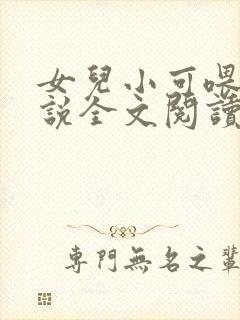 女兒小可喂
說全文閱讀
專門無名之輩